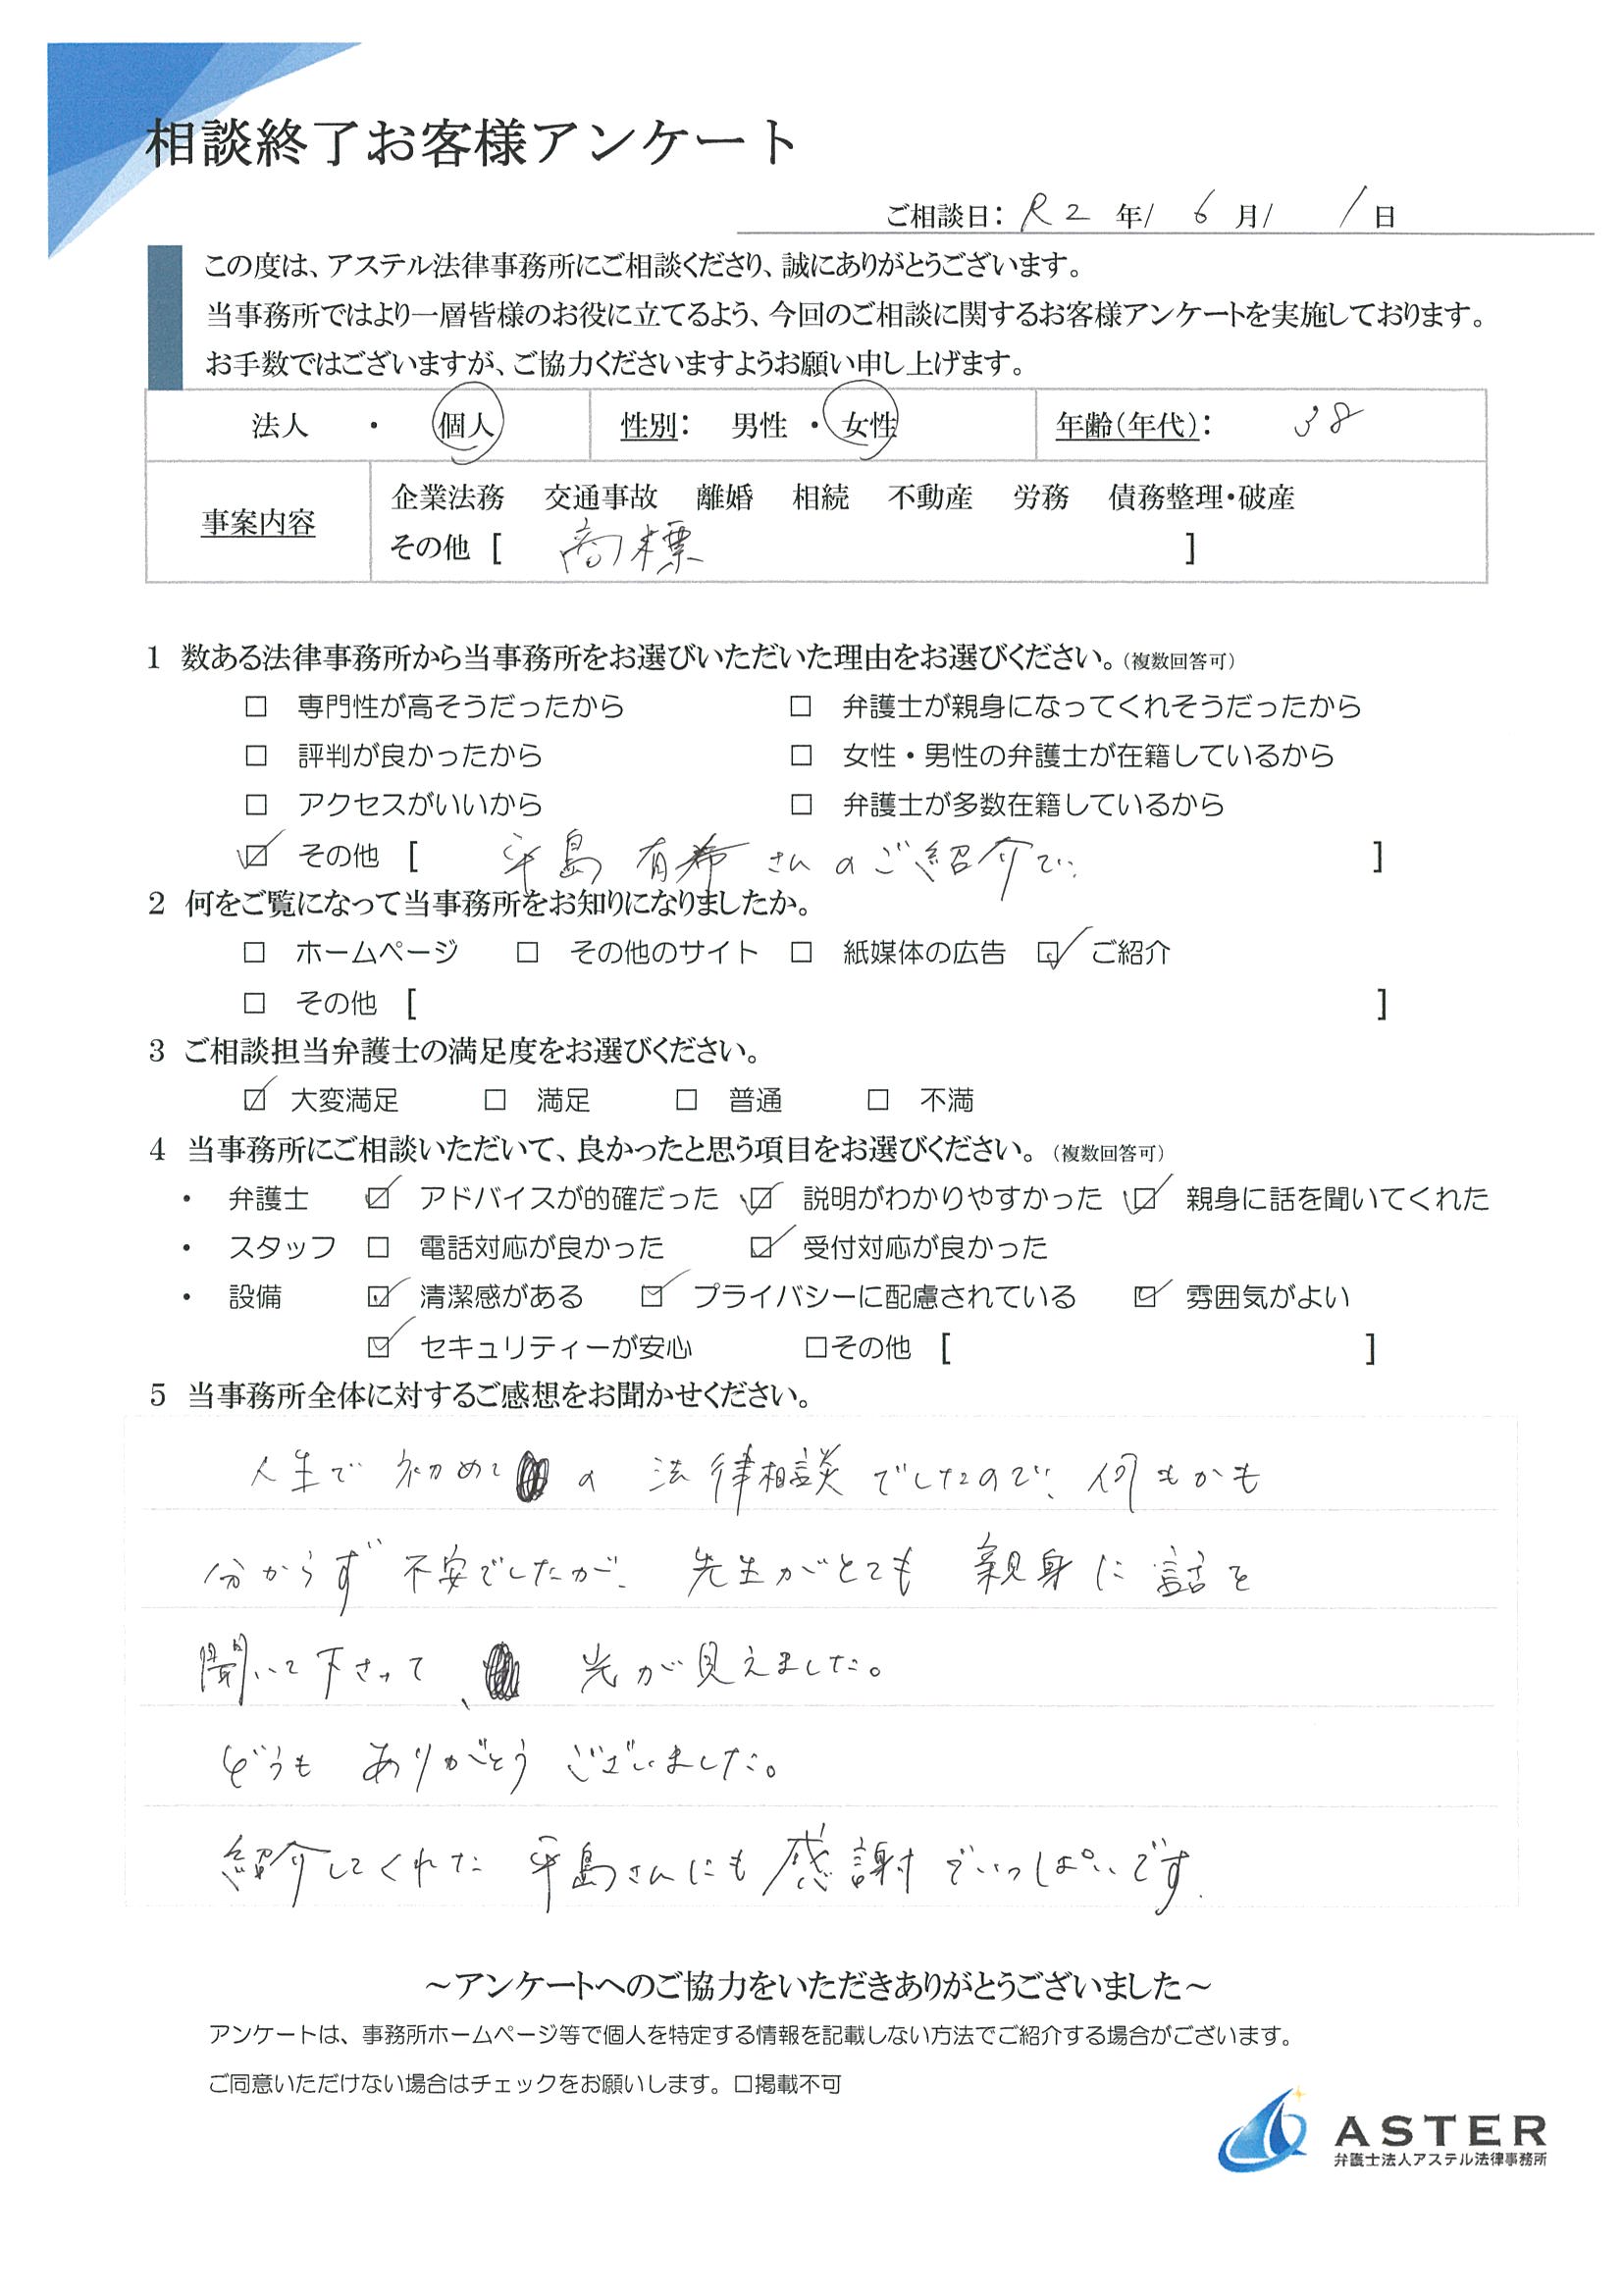 相談終了お客様アンケート
ご相談日： R2 年/ 6 月/ 1 日
この度は、アステル法律事務所にご相談くださり、誠にありがとうございます。
当事務所ではより一層皆様のお役に立てるよう、今回のご相談に関するお客様アンケートを実施しております。
お手数ではございますが、ご協力くださいますようお願い申し上げます。
法人 ・ 個人 性別： 男性 ・ 女性 年齢（年代）： 38
事案内容
企業法務 交通事故 離婚 相続 不動産 労務 債務整理・破産
その他 [ 商標 ]
1 数ある法律事務所から当事務所をお選びいただいた理由をお選びください。（複数回答可）
□ 専門性が高そうだったから □ 弁護士が親身になってくれそうだったから
□ 評判が良かったから □ 女性・男性の弁護士が在籍しているから
□ アクセスがいいから □ 弁護士が多数在籍しているから
☑ その他 [ 平島 有希さんのご紹介で ]
2 何をご覧になって当事務所をお知りになりましたか。
□ ホームページ □ その他のサイト □ 紙媒体の広告 ☑ ご紹介
□ その他 [ ]
3 ご相談担当弁護士の満足度をお選びください。
☑ 大変満足 □ 満足 □ 普通 □ 不満
4 当事務所にご相談いただいて、良かったと思う項目をお選びください。（複数回答可）
・ 弁護士 ☑ アドバイスが的確だった ☑ 説明がわかりやすかった ☑ 親身に話を聞いてくれた
・ スタッフ □ 電話対応が良かった ☑ 受付対応が良かった
・ 設備 ☑ 清潔感がある ☑ プライバシーに配慮されている ☑ 雰囲気がよい
☑ セキュリティーが安心 □その他 [ ]
5 当事務所全体に対するご感想をお聞かせください。
人生で初めての法律相談でしたので、何もかも
分からず不安でしたが、先生がとても親身に話を
聞いて下さって、光が見えました。
どうもありがとうございました。
紹介してくれた平島さんにも感謝でいっぱいです。
～アンケートへのご協力をいただきありがとうございました～
アンケートは、事務所ホームページ等で個人を特定する情報を記載しない方法でご紹介する場合がございます。
ご同意いただけない場合はチェックをお願いします。□掲載不可
ASTER
弁護士法人アステル法律事務所